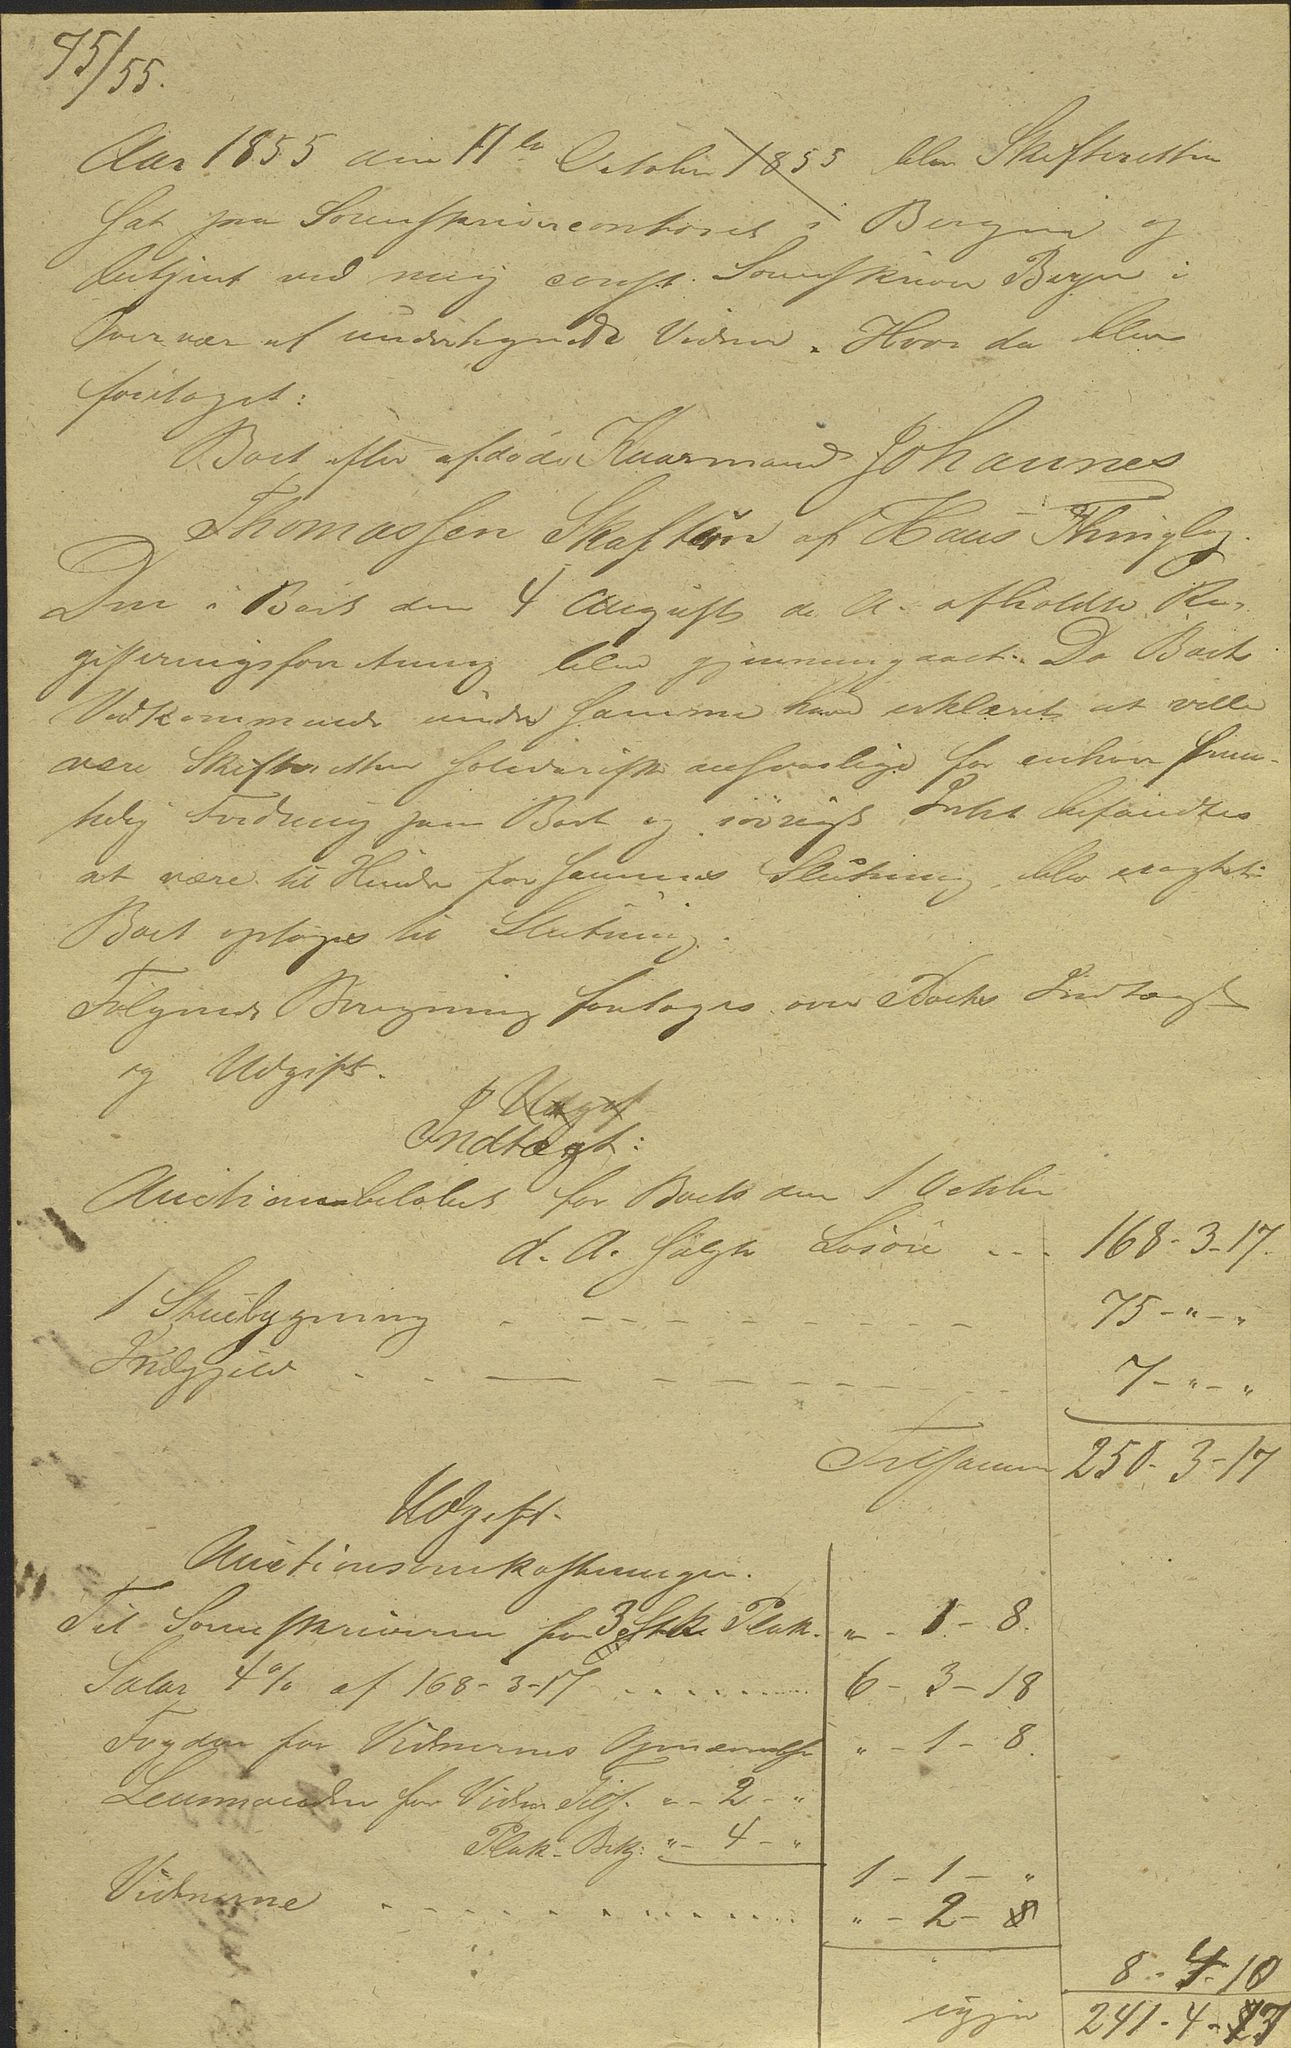 75/55.
Aar 1855 den 11te October 1855 blev Skifteretten
sat paa Sorenskrivercontoret i Bergen og
betjent ved mig const. Sorenskriver Beyer i
Overvær af undertegnede Vidner. Hvor da blev
foretaget:
Boet efter afdøde Kaarmand Johannes
Thomassen Skaftun af Haus Thinglag.
Den i Boet den 4 August d. A. afholdte Re-
gistreringsforretning blev gjennemgaaet. Da Boets
Vedkommende under samme have erklæret at ville
være Skifteretten solidarisk ansvarlige for enhver frem-
tidig Fordring paa Boet og iøvrigt Intet befandtes
at være til Hinder for sammes Slutning, blev eragtet:
Boet optages til Slutning.
Følgende Beregning foretages over Boets Indtægt
og Udgift.
Udgif
Indtægt:
Auctionsbeløbet for Boets den 1 October
d. A. solgte Løsøre - - - 168 - 3 - 17.
1 Stuebygning - - - - 75 - " - "
Indgjæld - - - - 7 - " - "
Tilsammen 250 - 3 - 17
Udgift.
Auctionsomkostninger.
Til Sorenskriveren for 3 Stk. Plak. " - 1 - 8.
Salar 4% af 168 - 3 - 17 ..... 6 - 3 - 18
Fogden for Vidnernes Opnævnelse " - 1 - 8.
Lensmanden for Vidners Tils. " - 2 - "
Plak. Bekj. " - 4 - "
1 - 1 - "
Vidnerne ..... " - 2 -
8 - 4 - 10
igjen 241 - 4 -